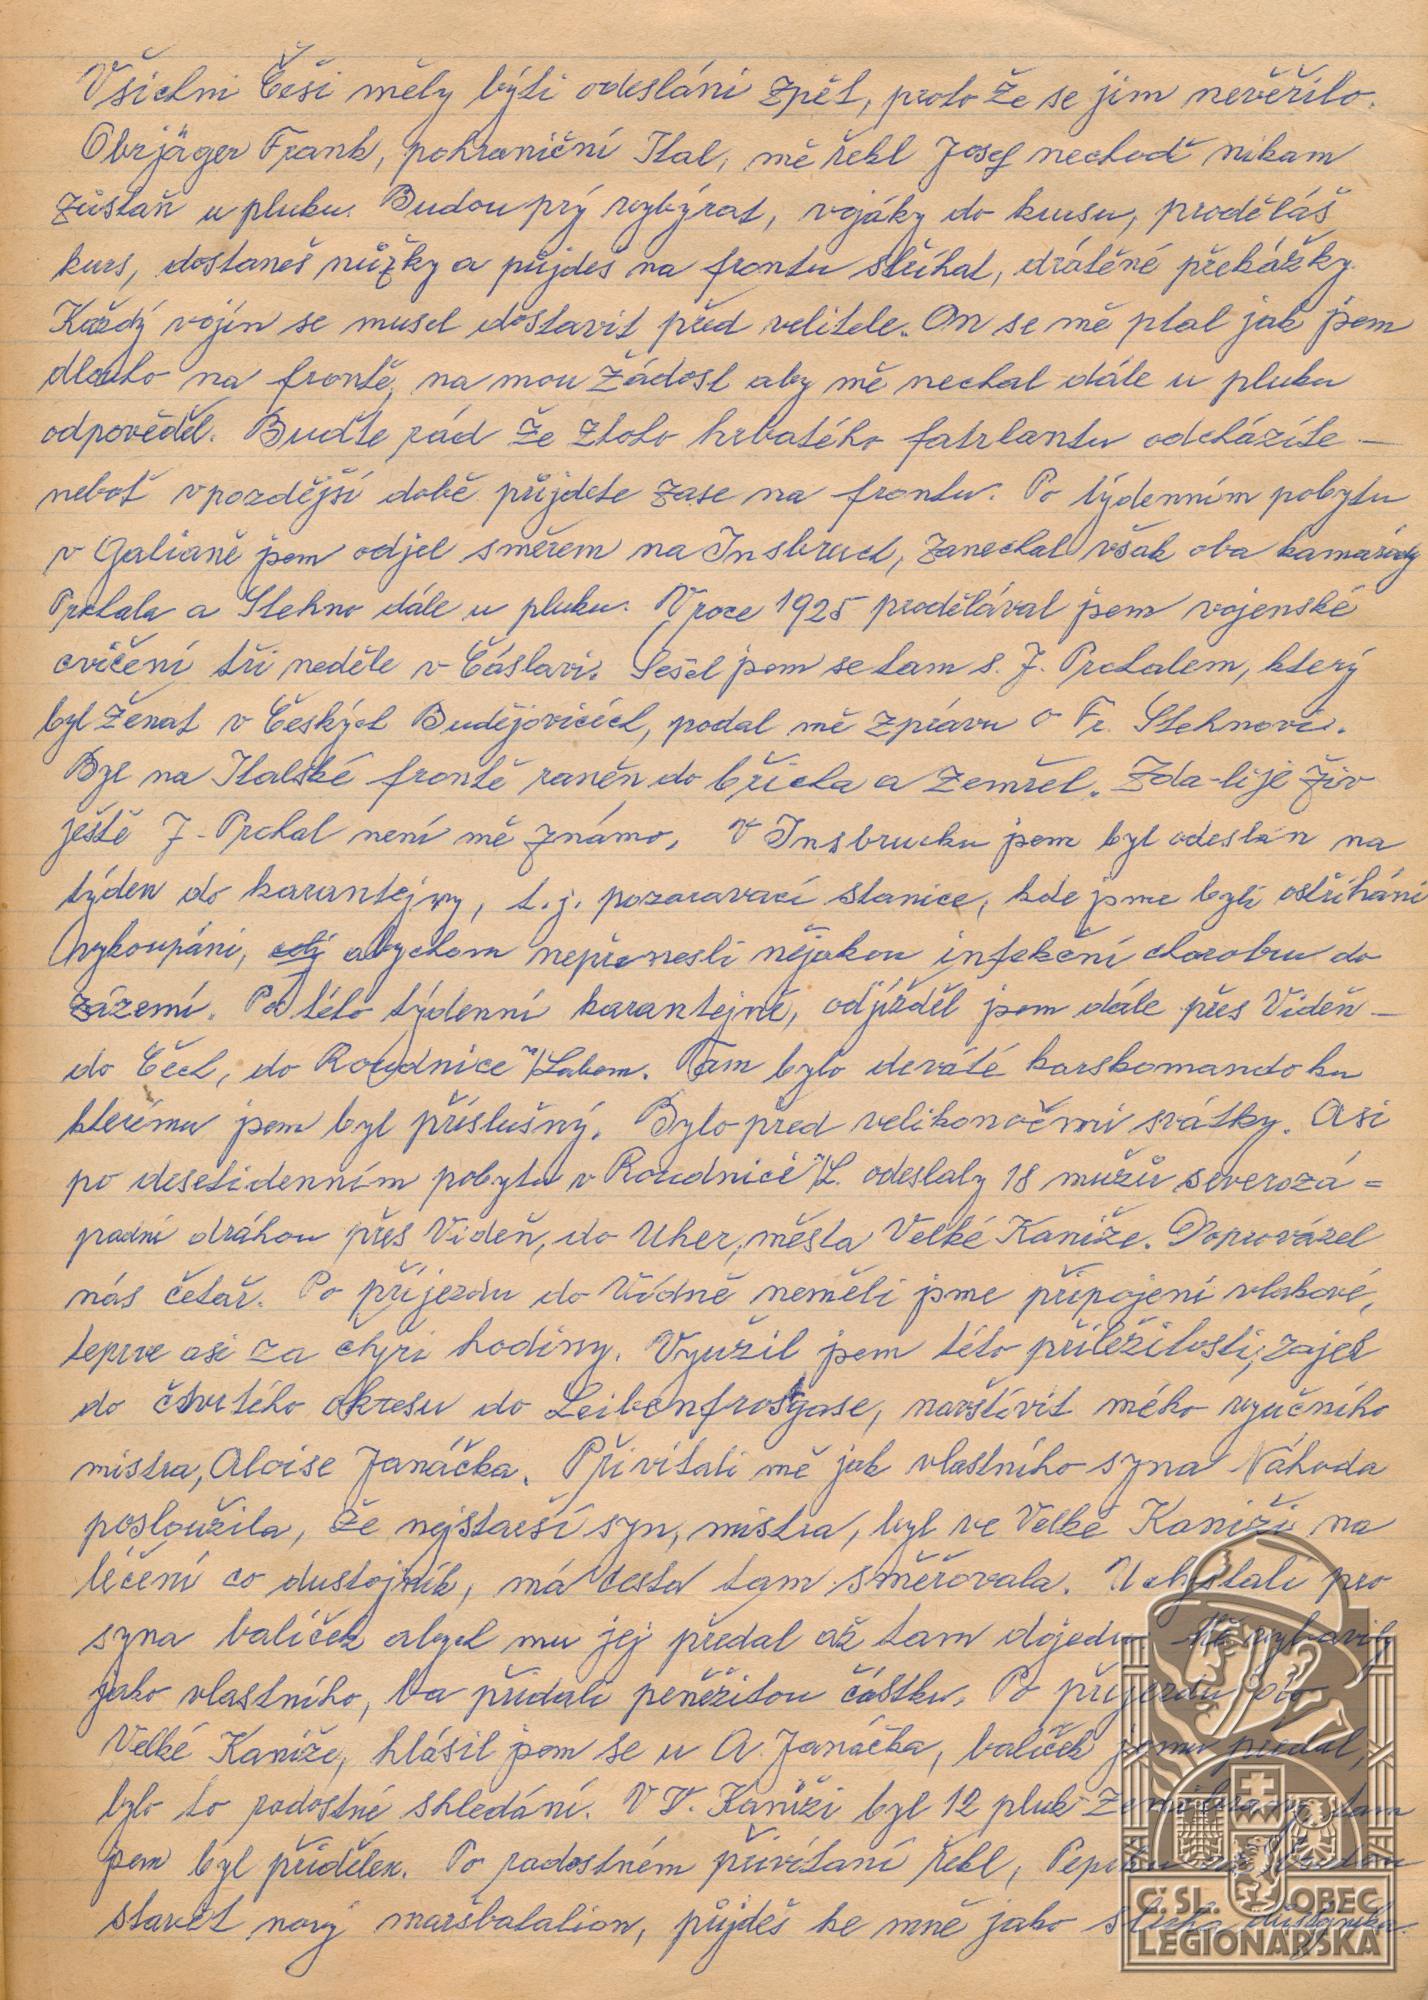 Všichni Češi měly býti odesláni zpět, proto že se jim nevěřilo.
Obrjäger Frank, pohraniční Ital, mě řekl Josef nechoď nikam
zůstaň u pluku. Budou prý vybýrat, vojáky do kursu, proděláš
kurs, dostaneš nůžky a půjdeš na frontu stříhat, drátěné překážky.
Každý vojín se musel dostavit před velitele. On se mě ptal jak jsem
dlouho na frontě, na mou žádost aby mě nechal dále u pluku
odpověděl. Buďte rád že ztoho hrbatého fatrlantu odcházíte –
neboť vpozdější době přijdete zase na frontu. Po týdenním pobytu
v Galianě jsem odjel směrem na Insbruch, zanechal však oba kamarády
Prchala a Stehno dále u pluku. V roce 1925 prodělával jsem vojenské
cvičení tři neděle v Čáslavi. Sešel jsem se tam s. J. Prchalem, který
byl ženat v Českých Budějovicích, podal mě zprávu o Fr. Stehnovi.
Byl na Italské frontě raněn do břicha a zemřel. Zda-li je živ
ještě J. Prchal není mě známo, V Insbrucku jsem byl odeslán na
týden do karantejny, t. j. pozaravací stanice, kde jsme byli ostříháni
vykoupáni, abychom nepřenesli nějakou infekční chorobu do
zázemí. Po této týdenní karantejně, odjížděl jsem dále přes Videň –
do Čech, do Roudnice n/Labem. Tam bylo deváté karskomando ku
kterému jsem byl příslušný. Bylo před velikonočními svátky. Asi
po desetidenním pobytu v Roudnici n/L. odeslaly 18 mužů severozá=
padní dráhou přes Videň, do Uher, města Velké Kaniže. Doprovázel
nás četař. Po příjezdu do Vídně neměli jsme připojení vlakové,
teprve asi za čtyři hodiny. Využil jsem této příležitosti, zajel
do čtvrtého okresu do Leibenfrosgase, navštívit mého vyučního
mistra, Aloise Janáčka. Přivítali mě jak vlastního syna Náhoda
posloužila, že nejstarší syn, mistra, byl ve Velké Kaniži na
léčení co dustojník, má cesta tam směřovala. Uchystali pro
syna balíček abych mu jej předal až tam dojedu. Mě vybavili
jako vlastního, ba přidali peněžitou částku. Po příjezdu do
Velké Kaniže, hlásil jsem se u A. Janáčka, balíček jemu předal,
bylo to radostné shledání. V V. Kaniži byl 12 pluk tam
jsem byl přidělen. Po radostném přivítání řekl, budou
stavět nový maršbatalion, půjdeš ke mně jako sluha důstojníka.
Č. SL. OBEC
LEGIONÁŘSKÁ